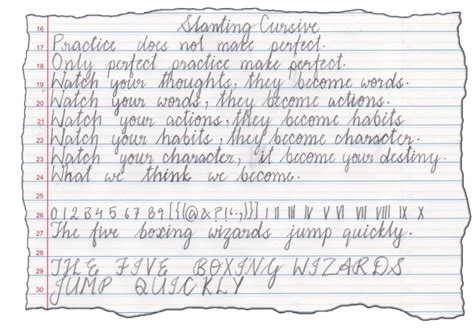 Slanting Cursive
16
17 Practice does not make perfect.
18 Only perfect practice make perfect.
19 Watch your thoughts, they become words.
20 Watch your words, they become actions.
21 Watch your actions, they become habits
22 Watch your habits, they become character.
23 Watch your character, it become your destiny.
24 What we think we become.
25
26 0 1 2 3 4 5 6 7 8 9 [{(@&?!:,)}] I II III IV V VI VII VIII IX X
27 The five boxing wizards jump quickly.
28
29 THE FIVE BOXING WIZARDS
30 JUMP QUICKLY